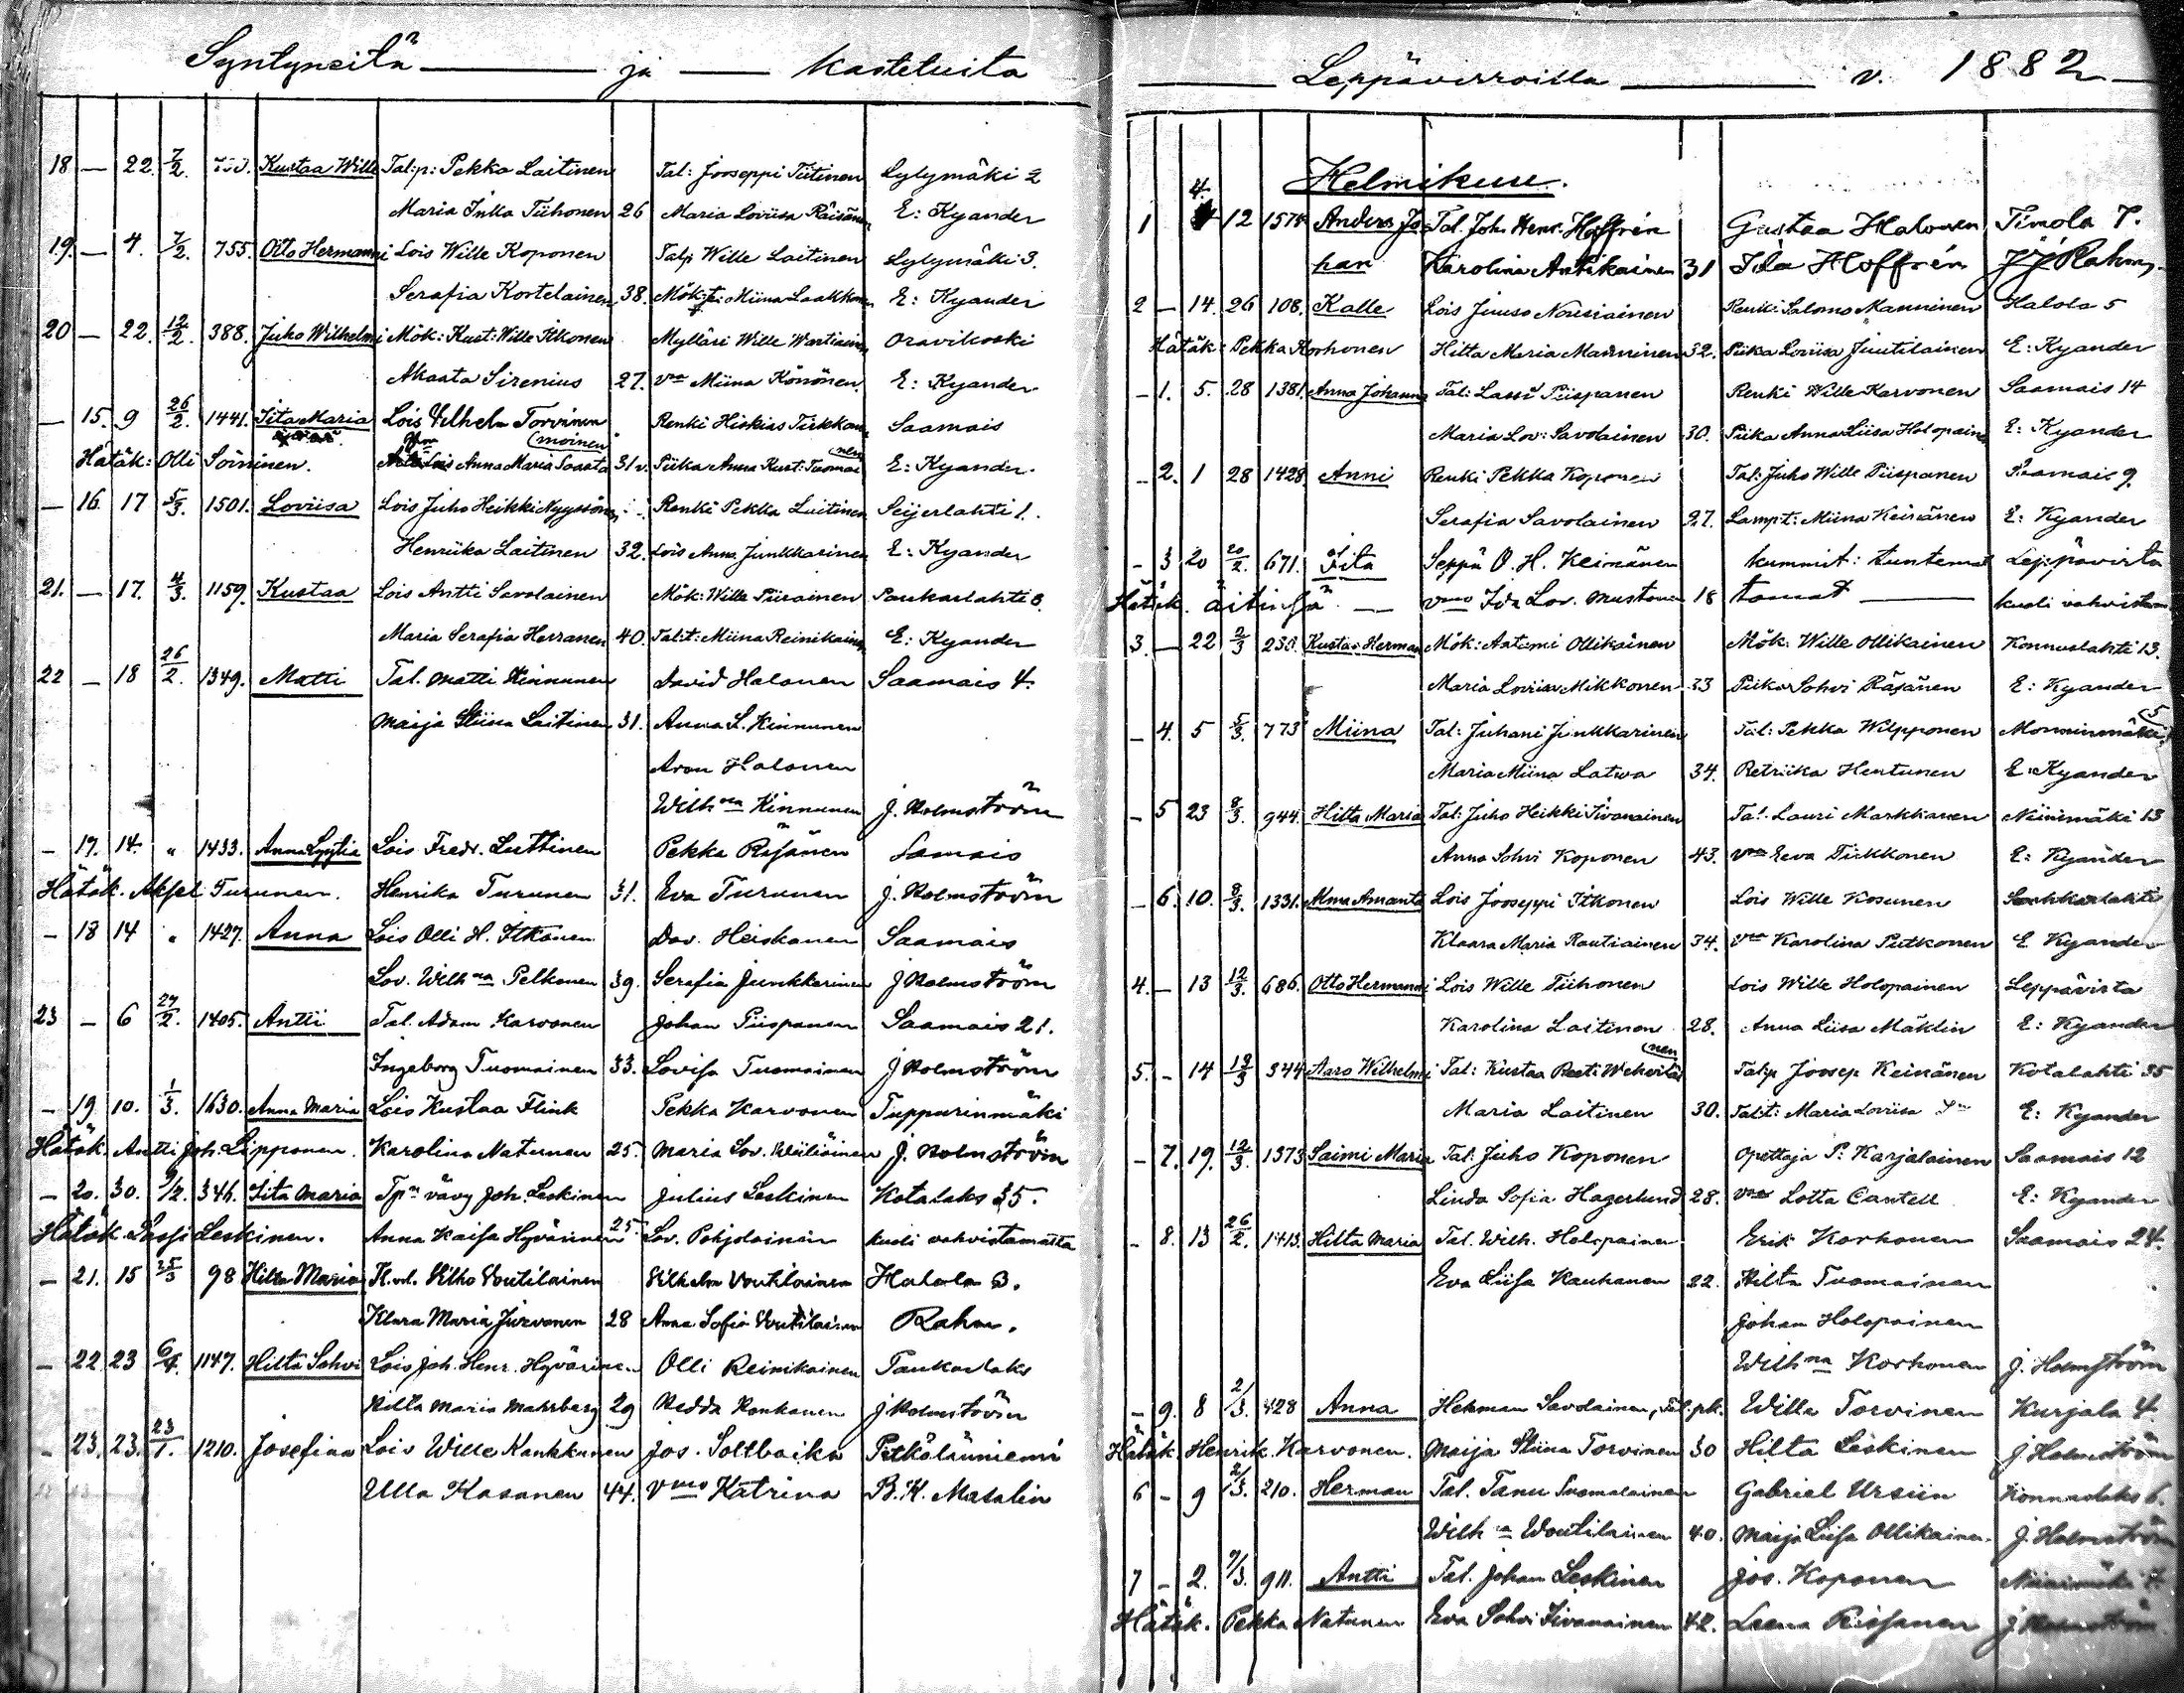 Syntyneitä — ja — kastetuita
18 — 22. 7/2. Kustaa Wille Tal:p: Pekka Laitinen Tal: Jooseppi Tiitinen Lylymäki 2
Maria Inka Tiihonen 26 Maria Loviisa Räisänen E: Kyander
19. — 4. 7/2. 755. Otto Hermanni Lois Wille Koponen Talp Wille Laitinen Lylymäki 3.
Serafia Kortelainen 38. Mök:t: Miina Laakkonen E: Kyander
20 — 22. 12/2. 388. Juho Wilhelmi Mök: Kust: Wille Itkonen Mylläri Wille Wartiainen Oravikoski
Akaata Sirenius 27. vmo Miina Könönen. E: Kyander
— 15. 9 26/2. 1441. Iita Maria Lois Vilhelm Torvinen Renki Hiskias Tirkkonen Saamais
Hätäk: Olli Soininen. Anna Maria Saasta (moinen 31 v. Piika Anna Kust: Tuomainen E: Kyander.
— 16. 17 5/3. 1501. Loviisa Lois Juho Heikki Nyyssönen Renki Pekka Laitinen Seijerlahti 1.
Henriika Laitinen 32. Lois Anna Junkkarinen E: Kyander
21. — 17. 4/3. 1159. Kustaa Lois Antti Savolainen Mök: Wille Piirainen Paukarlahti 8.
Maria Serafia Herranen 40. Tal:t: Miina Reinikainen E: Kyander
22 — 18 26/2. 1349. Matti Tal. Matti Kinnunen David Halonen Saamais 4.
Maija Stiina Laitinen 31. Anna L. Kinnunen
Aron Halonen
Wilhna Kinnunen J. Holmström
— 17. 14. " 1433. Anna Lyytia Lois Fredr. Luttinen Pekka Räsänen Samais
Hätäk. Aksel Turunen. Henrika Turunen 31. Eva Turunen J. Holmström
— 18 14 " 1427. Anna Lois Olli H. Itkonen Dav. Heiskanen Saamais
Lov. Wilhna Pelkonen 39. Serafia Junkkarinen J Holmström
23 — 6 27/2. 1405. Antti Tal. Adam Karvonen Johan Piispanen Saamais 21.
Ingeborg Tuomainen 33. Lovisa Tuomainen J Holmström
— 19 10. 1/3. 1630. Anna Maria Lois Kustaa Flink Pekka Karvonen Tuppurinmäki
Hätäk. Antti Joh. Lipponen. Karolina Natunen 25. Maria Lov. Wäliäinen J. Holmström
— 20. 30. 9/2. 346. Iita Maria Tpn vävy Joh. Leskinen Julius Leskinen Kotalaks 35.
Hätäk Lassi Leskinen. Anna Kaisa Hyvärinen 25 Lov. Pohjolainen kuoli vahvistamatta
— 21. 15 25/3 98 Hilta Maria Vilho Voutilainen Vilhelm Voutilainen Halola 3.
Klara Maria Jurvonen 28 Anna Sofia Voutilainen Rahm.
— 22. 23 6/4. 1147. Hilta Sohvi Lois Joh. Henr. Hyvärinen Olli Reinikainen Paukarlaks
Hilta Maria Mahrberg 29 Hedda Ronkanen J Holmström
— 23. 23. 23/1. 1210. Josefina Lois Wille Kankkunen Jos. Soltbacka Petkölänniemi
Ulla Kasanen 44. vmo Katrina B. K. Masalin
— Leppävirroilla — v. 1882 —
Helmikuu.
1 4. 12 1578 Anders Jo Tal. Joh. Henr. Hoffrén Gustaa Halonen Timola 7.
han Karolina Antikainen 31 Ida Hoffrén J J Rahm.
2 — 14. 26 108. Kalle Lois Juuso Nousiainen Renki: Salomo Manninen Halola 5
Hätäk: Pekka Korhonen Hilta Maria Manninen 32. Piika Loviisa Juutilainen E: Kyander
— 1. 5. 28 1381. Anna Johanna Tal: Lassi Piispanen Renki Wille Karvonen Saamais 14
Maria Lov: Savolainen 30. Piika Anna Liisa Holopainen E: Kyander
— 2. 1 28 1428. Anni Renki Pekka Koponen Tal: Juho Wille Piispanen Saamais 9.
Serafia Savolainen 27. Lamp:t: Miina Keinänen E: Kyander
— 3 20 20/2. 671. Iita Seppä O. H. Keinänen kummit: tuntemat Leppävirta
Hätäk. äitinsä — vmo Ida Lov. Mustonen 18 tomat — kuoli vahvistam
3. — 22 2/3 250. Kustaa Herman Mök: Antami Ollikainen Mök: Wille Ollikainen Konnuslahti 13.
Maria Loviisa Mikkonen 33 Piika Sohvi Räsänen E: Kyander
— 4. 5 5/3. 773 Miina Tal: Juhani Junkkarinen Tal: Pekka Wilpponen Monninmäki 5
Maria Miina Latva 34. Retriika Hentunen E: Kyander
— 5 23 8/3. 944. Hilta Maria Tal: Juho Heikki Iivanainen Tal. Lauri Markkanen Niinimäki 13
Anna Sohvi Koponen 43. vmo Eeva Tirkkonen E: Kyander
— 6. 10. 8/3. 1331. Alma Amanta Lois Jooseppi Itkonen Lois Wille Kosunen
Klaara Maria Rautiainen 34. vmo Karolina Putkonen E Kyander
4. — 13 12/3. 686. Otto Hermanni Lois Wille Tiihonen Lois Wille Holopainen Leppävirta
Karolina Laitinen 28. Anna Liisa Mäklin E: Kyander
5. — 14 19/3 344 Aaro Wilhelmi Tal: Kustaa Reet: Wehviläi(nen Tal:p Joosep Keinänen Kotalahti 35
Maria Laitinen 30. Tal:t: Maria Loviisa E: Kyander
— 7. 19. 12/3. 1373 Saimi Maria Tal: Juho Koponen Opettaja P: Karjalainen Saamais 12
Linda Sofia Hagerlund 28. vmo Lotta Cantell E: Kyander
— 8. 13 26/2. 1413. Hilta Maria Tal. Wilh. Holopainen Erik Korhonen Saamais 24.
Eva Liisa Kauhanen 22. Hilta Tuomainen
Johan Holopainen
Wilhna Korhonen J. Holmström
— 9. 8 2/3. 428 Anna Hekman Savolainen, Tal. pk. Wille Torvinen Kurjala 4.
Hätäk. Henrik Karvonen. Maija Stiina Torvinen 30 Hilta Leskinen J Holmström
6 — 9 2/3. 210. Herman Tal. Tanu Suomalainen Gabriel Ursin Konnuslaks 6.
Wilhna Woutilainen 40. Maija Liisa Ollikainen J. Holmström
7 — 2. 7/3. 911. Antti Tal. Johan Leskinen Jos. Koponen Niinimäki
Hätäk. Pekka Natunen Eva Sohvi Iivanainen 42. Leena Rissanen J Holmström